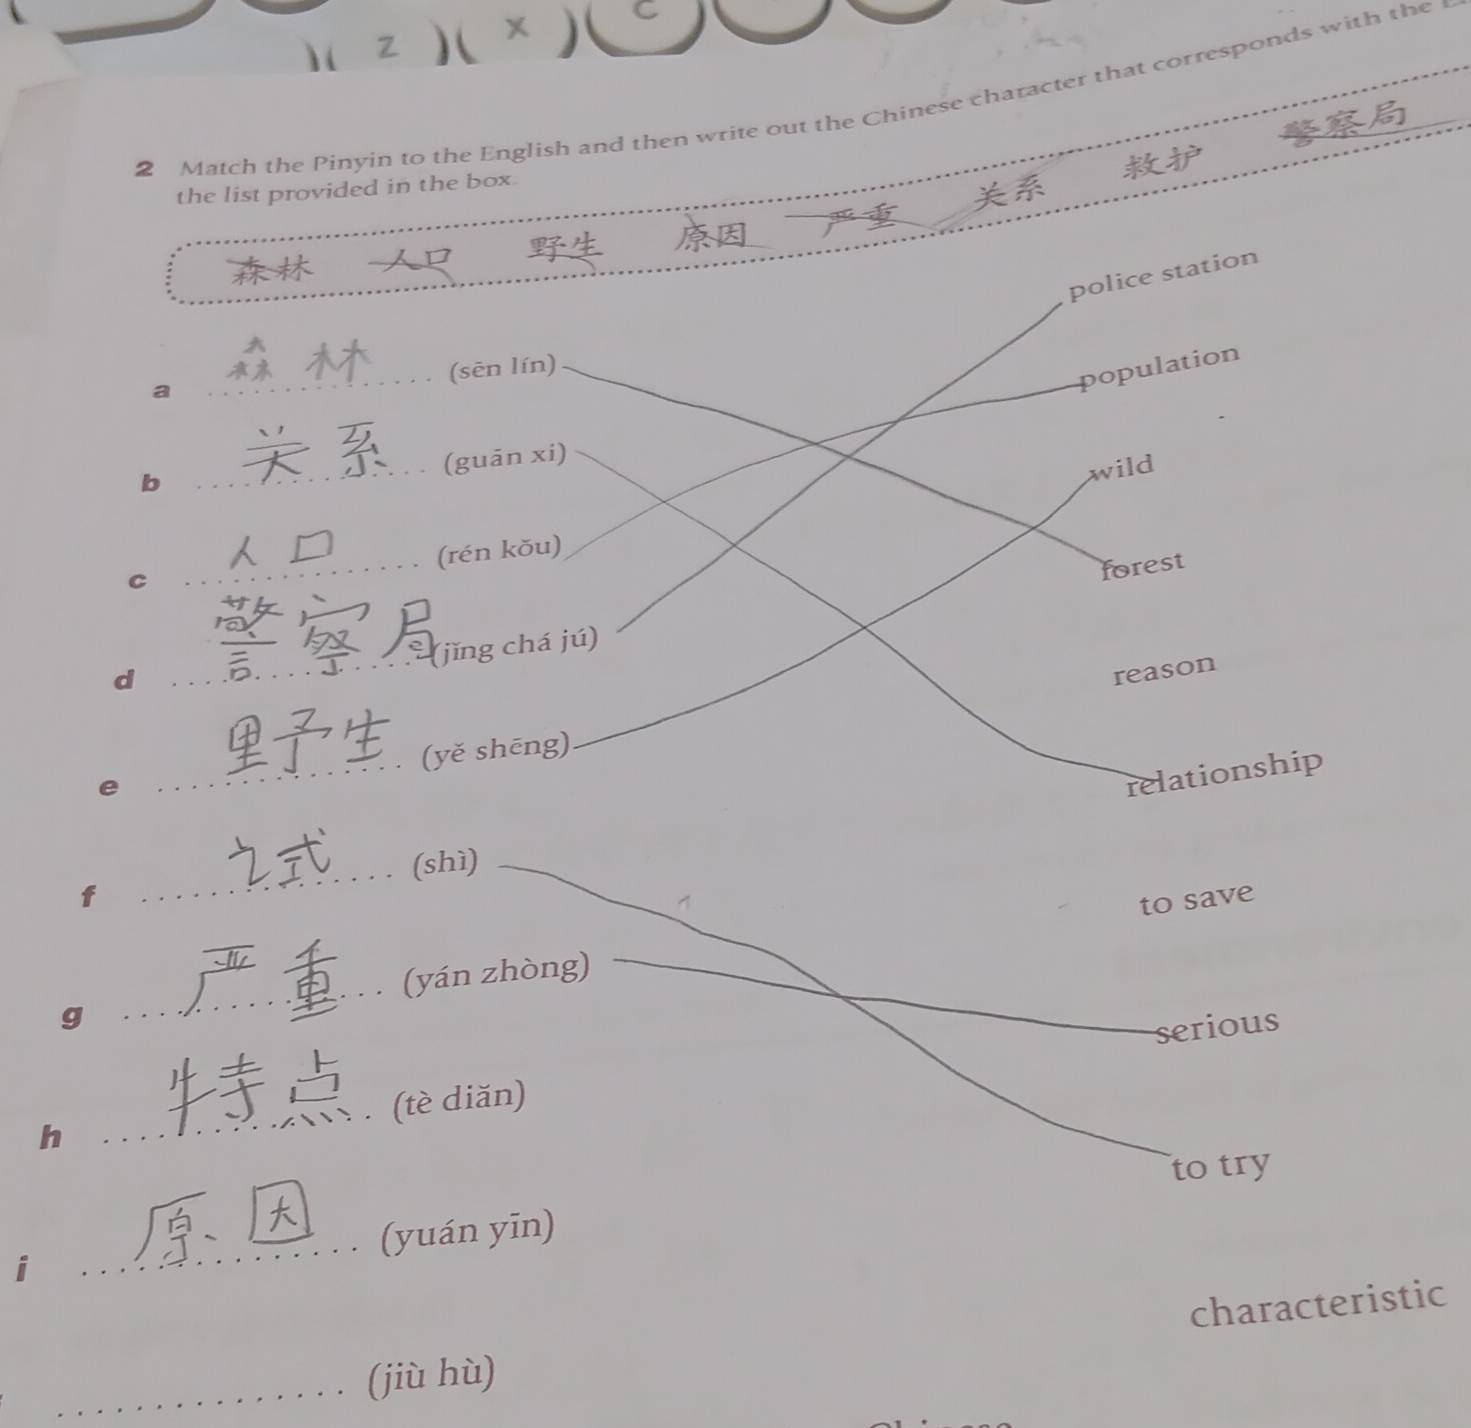 Z X C
2 Match the Pinyin to the English and then write out the Chinese character that corresponds with the
the list provided in the box.
森林 人口 野生 原因 严重 关系 救护 警察局
police station
a 森林 (sēn lín)
population
b 关系 (guān xi)
wild
c 人口 (rén kǒu)
forest
d 警察局 (jǐng chá jú)
reason
e 野生 (yě shēng)
relationship
f 式 (shì)
to save
g 严重 (yán zhòng)
serious
h 特点 (tè diǎn)
to try
i 原因 (yuán yīn)
characteristic
(jiù hù)